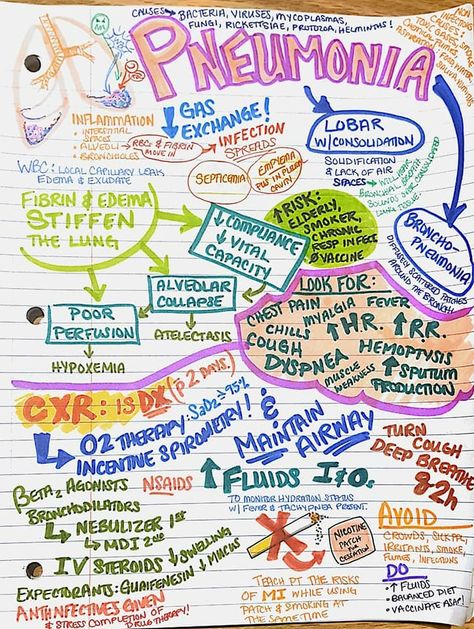 CAUSES → BACTERIA, VIRUSES, MYCOPLASMAS,
FUNGI, RICKETTSIAE, PROTOZOA, HELMINTHS!
PNEUMONIA
INFLAMMATION
• INTERSTITIAL
SPACES
• ALVEOLI → RBCs & FIBRIN
MOVE IN
• BRONCHIOLES
↓ GAS
EXCHANGE!
→ INFECTION
SPREADS
SEPTICEMIA
EMPYEMA
PUS IN PLEURAL
CAVITY
LOBAR
W/CONSOLIDATION
SOLIDIFICATION
& LACK OF AIR
SPACES →
BRONCHO-
PNEUMONIA
DIFFUSELY SCATTERED PATCHES
AROUND THE BRONCHI
WBC: LOCAL CAPILLARY LEAK
EDEMA & EXUDATE
FIBRIN & EDEMA
STIFFEN
THE LUNG
↓ COMPLIANCE
↓ VITAL
CAPACITY
↑ RISK:
ELDERLY,
SMOKER,
CHRONIC
RESP INFECT
Ø VACCINE
POOR
PERFUSION
HYPOXEMIA
ALVEOLAR
COLLAPSE
ATELECTASIS
LOOK FOR:
CHEST PAIN
MYALGIA
FEVER
CHILLS
↑ H.R.
↑ R.R.
COUGH
HEMOPTYSIS
DYSPNEA
MUSCLE
WEAKNESS
↑ SPUTUM
PRODUCTION
CXR: IS DX (p̄ 2 DAYS.)
O2 THERAPY: SaO2 ≥ 95%
INCENTIVE SPIROMETRY! &
MAINTAIN
AIRWAY
TURN
COUGH
DEEP BREATHE
q2h
BETA2 AGONISTS
BRONCHODILATORS
NSAIDS
↳ NEBULIZER 1ST
↳ MDI 2ND
↑ FLUIDS I&O.
TO MONITOR HYDRATION STATUS
W/ FEVER & TACHYPNEA PRESENT.
IV STEROIDS ↓ SWELLING
EXPECTORANTS: GUAIFENESIN ↓ MUCUS
ANTIINFECTIVES GIVEN
& STRESS COMPLETION OF
DRUG THERAPY!
NICOTINE
PATCH
for
CESSATION
TEACH PT THE RISKS
OF MI WHILE USING
PATCH & SMOKING AT
THE SAME TIME
AVOID
CROWDS, SICK PPL,
IRRITANTS, SMOKE,
FUMES, INFECTIONS
DO
• ↑ FLUIDS
• BALANCED DIET
• VACCINATE ASAP!